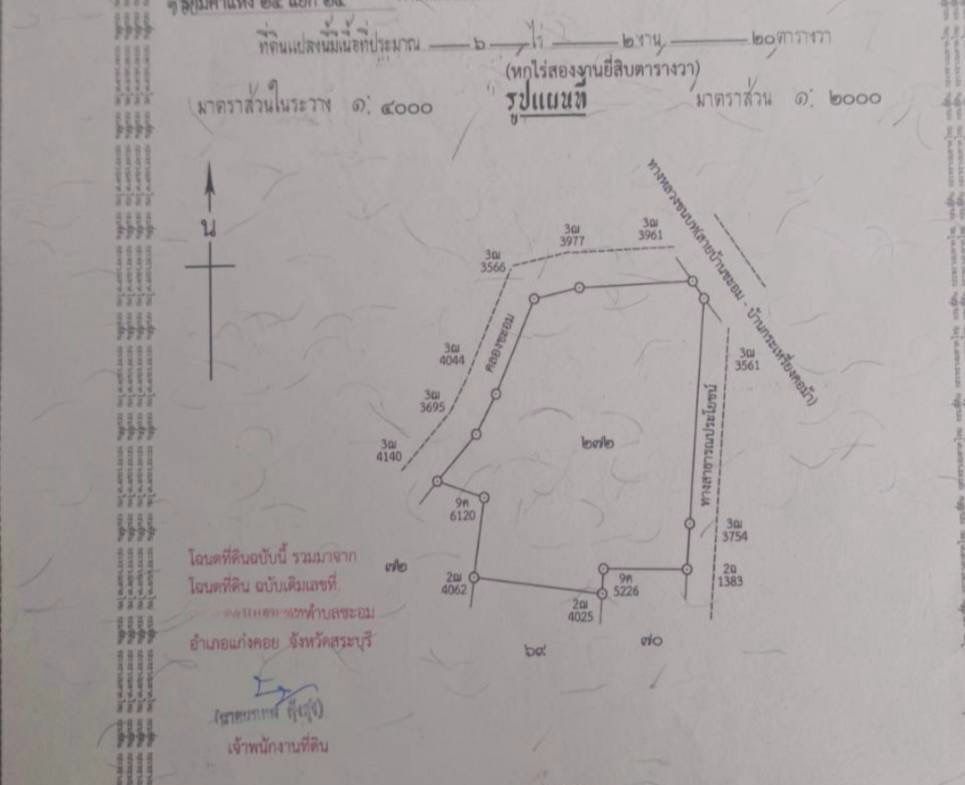 ที่ดินแปลงนี้มีเนื้อที่ประมาณ ๖ ไร่ ๒ งาน ๒๐ ตารางวา
(หกไร่สองงานยี่สิบตารางวา)
มาตราส่วนในระวาง ๑: ๔๐๐๐
รูปแผนที่
มาตราส่วน ๑: ๒๐๐๐
น
ทางหลวงชนบท(สายบ้านชะอม - บ้านกระเหรี่ยงคอม้า)
3ฌ
3961
3ฌ
3977
3ฌ
3566
คลองชะอม
3ฌ
4044
3ฌ
3561
3ฌ
3695
ทางสาธารณประโยชน์
3ฌ
4140
๒๗๒
9ค
6120
3ฌ
3754
โฉนดที่ดินฉบับนี้ รวมมาจาก
๗๒
2ฌ
4062
9ค
5226
1383
โฉนดที่ดิน ฉบับเดิมเลขที่
2ฌ
4025
ตำบลชะอม
อำเภอแก่งคอย จังหวัดสระบุรี
๖๙
๗๐
เจ้าพนักงานที่ดิน